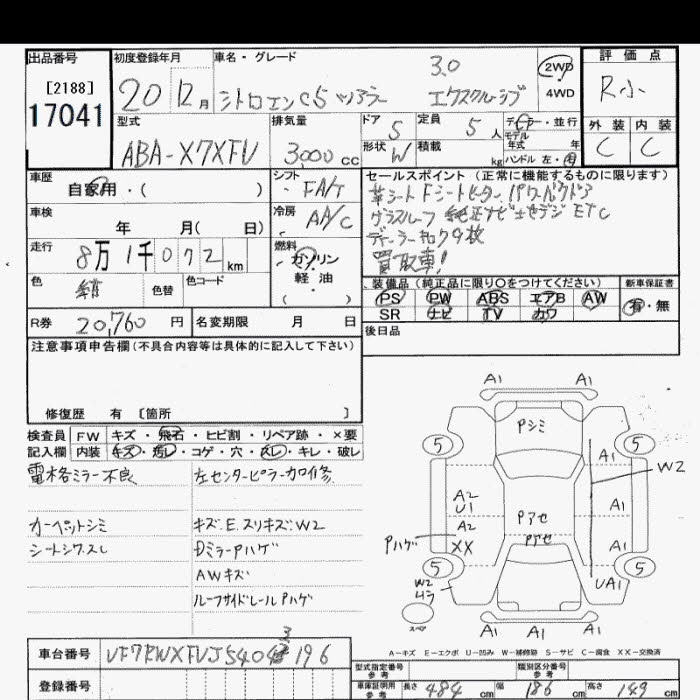 出品番号
[2188]
17041
初度登録年月
20 12月
車名・グレード
シトロエンC5 ツアラー
3.0
エクスクルーシブ
2WD
4WD
評価点
R小
外装 内装
C C
型式
ABA-X7XFV
排気量
3,000 cc
ドア
5
定員
5 人
形状
W
積載
kg
ディーラー・並行
モデル年式 年
ハンドル 左・右
車歴
自家用・( )
シフト
FA/T
車検
年 月( 日)
冷房
AA/C
走行
8万1千072 km
燃料
ガソリン
軽油
・( )
色
色替
色コード
R券
20,760 円
名変期限 月 日
セールスポイント(正常に機能するものに限ります)
革シート Fシートヒーター パワーバックドア
グラスルーフ 純正ナビ 地デジ ETC
ディーラーキロク9枚
買取車!
装備品(純正品に限り○をつけてください)
新車保証書
PS PW ABS エアB AW
SR ナビ TV カワ
有・無
後日品
注意事項申告欄(不具合内容等は具体的に記入して下さい)
修復歴 有 〔箇所 〕
検査員記入欄
FW キズ・飛石・ヒビ割・リペア跡・×要
内装 キズ・汚レ・コゲ・穴・スレ・キレ・破レ
電格ミラー不良
左センターピラー加修
カーペットシミ
キズ.E.スリキズW2
シートシワスレ
DミラーPハゲ
AWキズ
ルーフサイドレールPハゲ
A1 A1
Pシミ
5 5
A1
W2
A2
U1
A1
A2
Pアセ
Pハゲ
XX
Pアセ
A1
5 5
W2
UA1
スペア
A1 A1 A1
A-キズ E-エクボ U-凹み W-補修跡 S-サビ C-腐食 XX-交換済
車台番号
登録番号
型式指定番号
参考
類別区分番号
参考
車庫証明用
参考
長さ 484 cm 幅 186 cm 高さ 149 cm